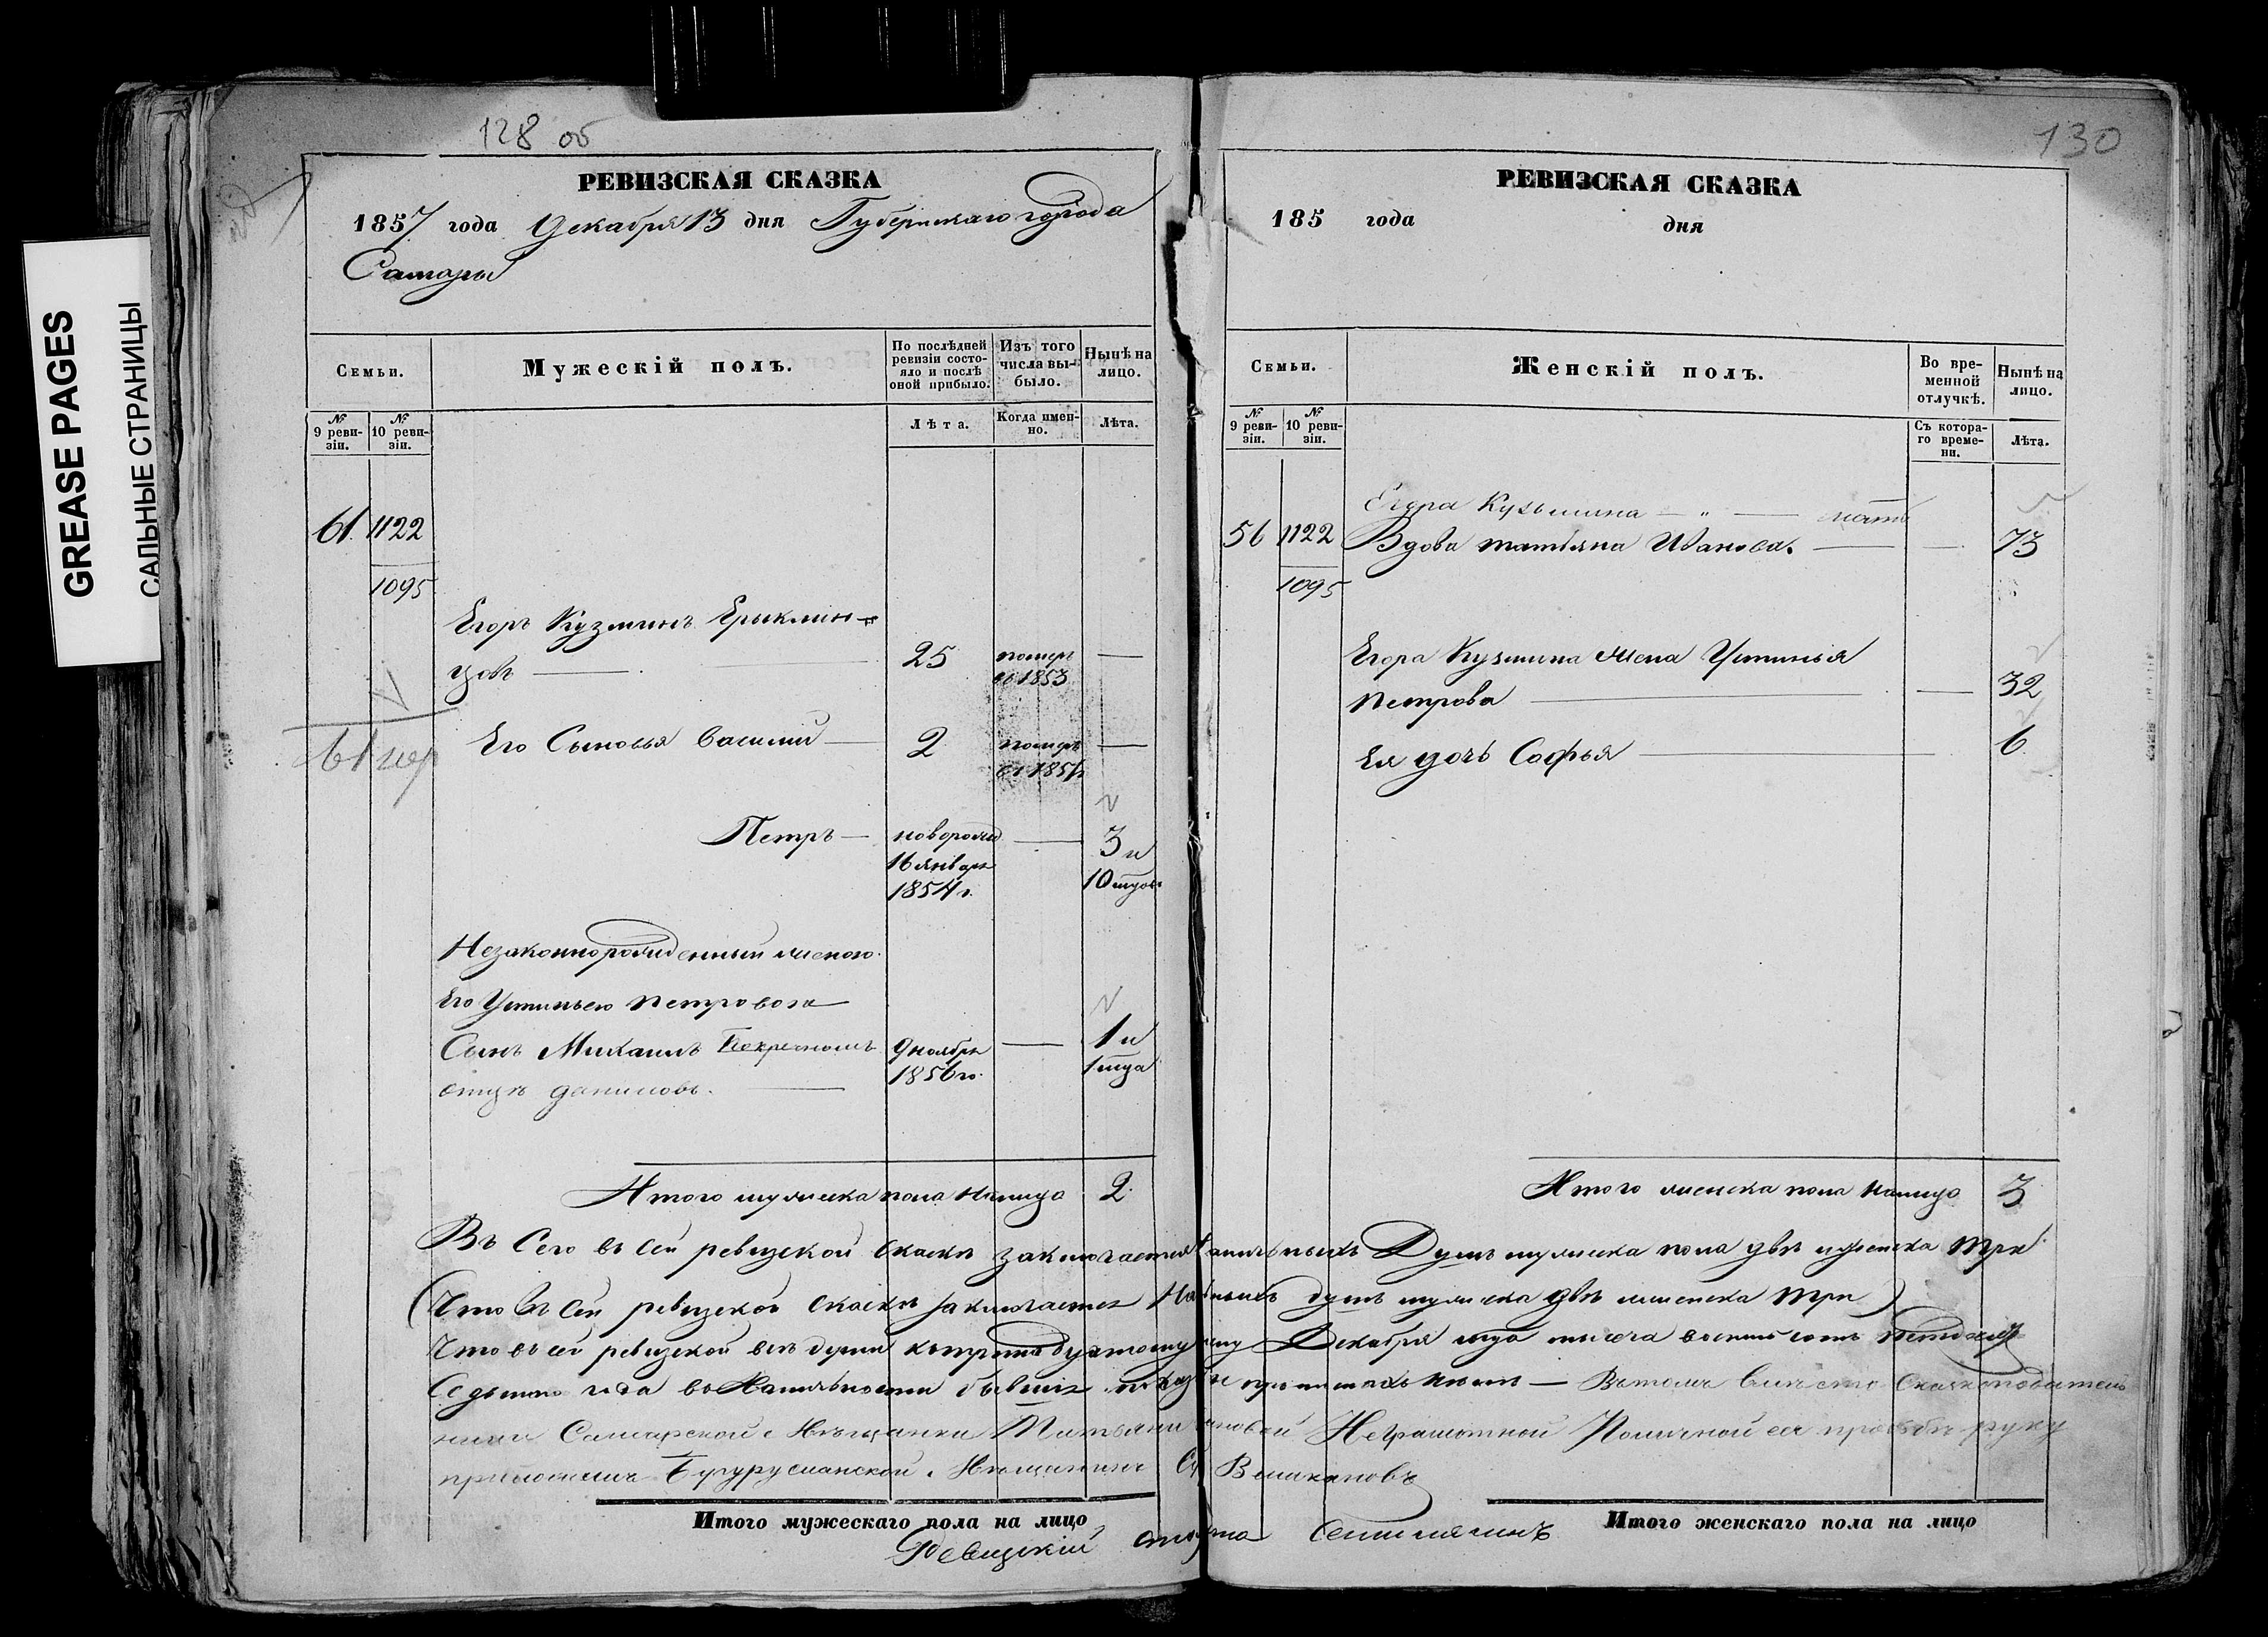 GREASE PAGES
САЛЬНЫЕ СТРАНИЦЫ
128 об
РЕВИЗСКАЯ СКАЗКА
1857 года Декабря 13 дня Губернскаго города
Самары
Семьи.
Мужескій полъ.
По послѣдней ревизіи состо-
яло и послѣ
оной прибыло.
Изъ того
числа вы-
было.
Нынѣ на
лицо.
№
9 реви-
зіи.
№
10 реви-
зіи.
Лѣта.
Когда имен-
но.
Лѣта.
61. 1122
1095
Егоръ Кузминъ Ерыклин-
цовъ 25 померъ
въ 1853
61 мер
Его Сыновья Василий 2 померъ
въ 185
Петръ новорожд 3 и
16 января 10 мцов
1854 г.
Незаконнорожденный женою
Его Устиньею Петровою
Сынъ Михаилъ По крестному 9 ноября 1 и
отцу Даниловъ. 1856 го. 1 мца
Итого мужеска пола налицо 2
130
РЕВИЗСКАЯ СКАЗКА
185 года дня
Семьи.
Женскій полъ.
Во вре-
менной
отлучкѣ.
Нынѣ на
лицо.
№
9 реви-
зіи.
№
10 реви-
зіи.
Съ котора-
го време-
ни.
Лѣта.
Егора Кузьмина " мать
56 1122 Вдова Татьяна Иванова. 73
1095
Егора Кузмина жена Устинья
Петрова 32
Ея дочь Софья 6
Итого женска пола налицо 3
Въ Сего въ сей ревизской скаске заключается наличныхъ Душъ мужеска пола две женска три
(Что въ сей ревизской скаске заключается наличныхъ душъ мужеска две женска три)
Что въ сей ревизской все души къ тринадцатому Декабря мца тысяча восемьсотъ пятдесятъ
Седьмаго года въ наличности бывшия показаны — Въ томъ вместо Сказкоподатель
ницы Самарской Мещанки Татьяны Ивановой Неграмотной По личной ея прозьбе руку
приложилъ Бугурусланской Мещанинъ
Итого мужескаго пола на лицо
Итого женскаго пола на лицо